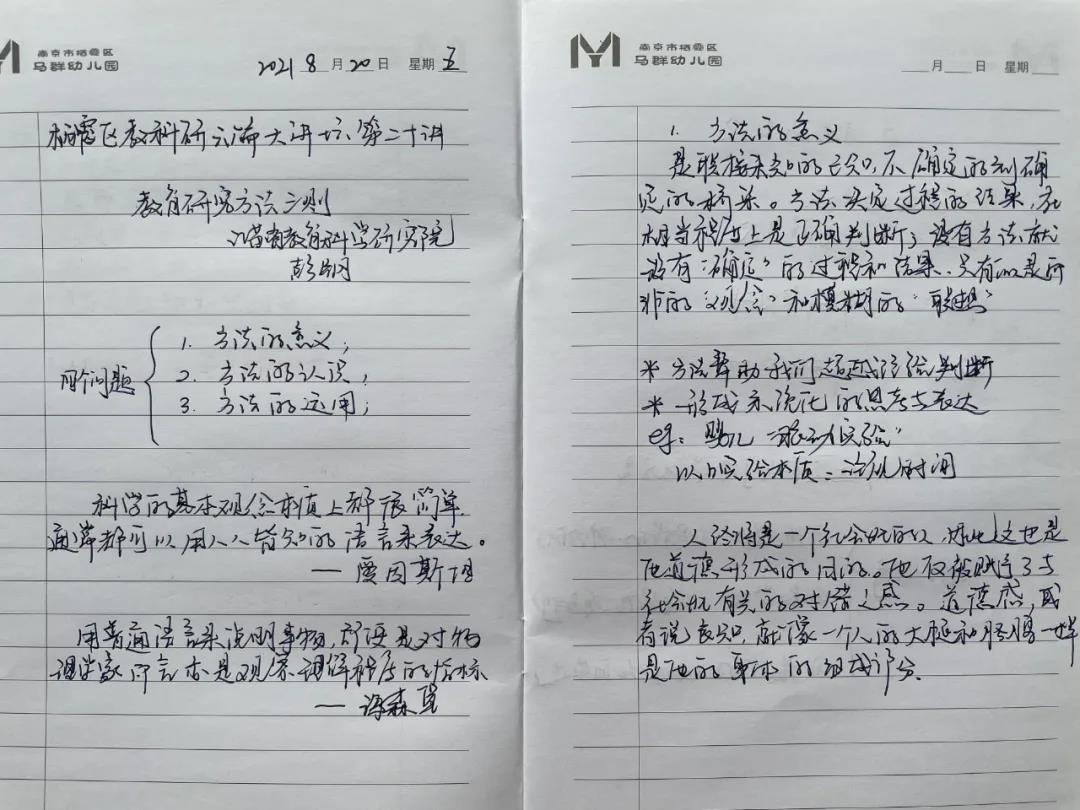 南京市栖霞区
马群幼儿园
2021 8月20日 星期五
栖霞区教科研云端大讲坛、第二十讲
教育研究方法三则
江苏省教育科学研究院
彭钢
四个问题
1. 方法的意义；
2. 方法的认识；
3. 方法的运用；
科学的基本观念本质上都很简单
通常都可以用人人皆知的语言来表达。
— 爱因斯坦
用普通语言来说明事物，即便是对物
理学家而言亦是观察理解程度的指标
— 海森堡
南京市栖霞区
马群幼儿园
月 日 星期
1. 方法的意义
是联接未知的已知，不确定的到确
定的桥梁。方法决定过程的结果，在
相当程度上是正确判断；没有方法就
没有“确定”的过程和结果，只有似是而
非的“观念”和模糊的“联想”
* 方法帮助我们超越经验判断
* 形成系统化的思考与表达
eg：婴儿 实验”
实验本质：注视时间
人 是一个社会 这也是
他道德形成的目的。他 被赋予了与
社会 有关的对错之感。道德感，或
者说 ，就像一个人的大腿和胳膊一样
是他的 的组成部分.